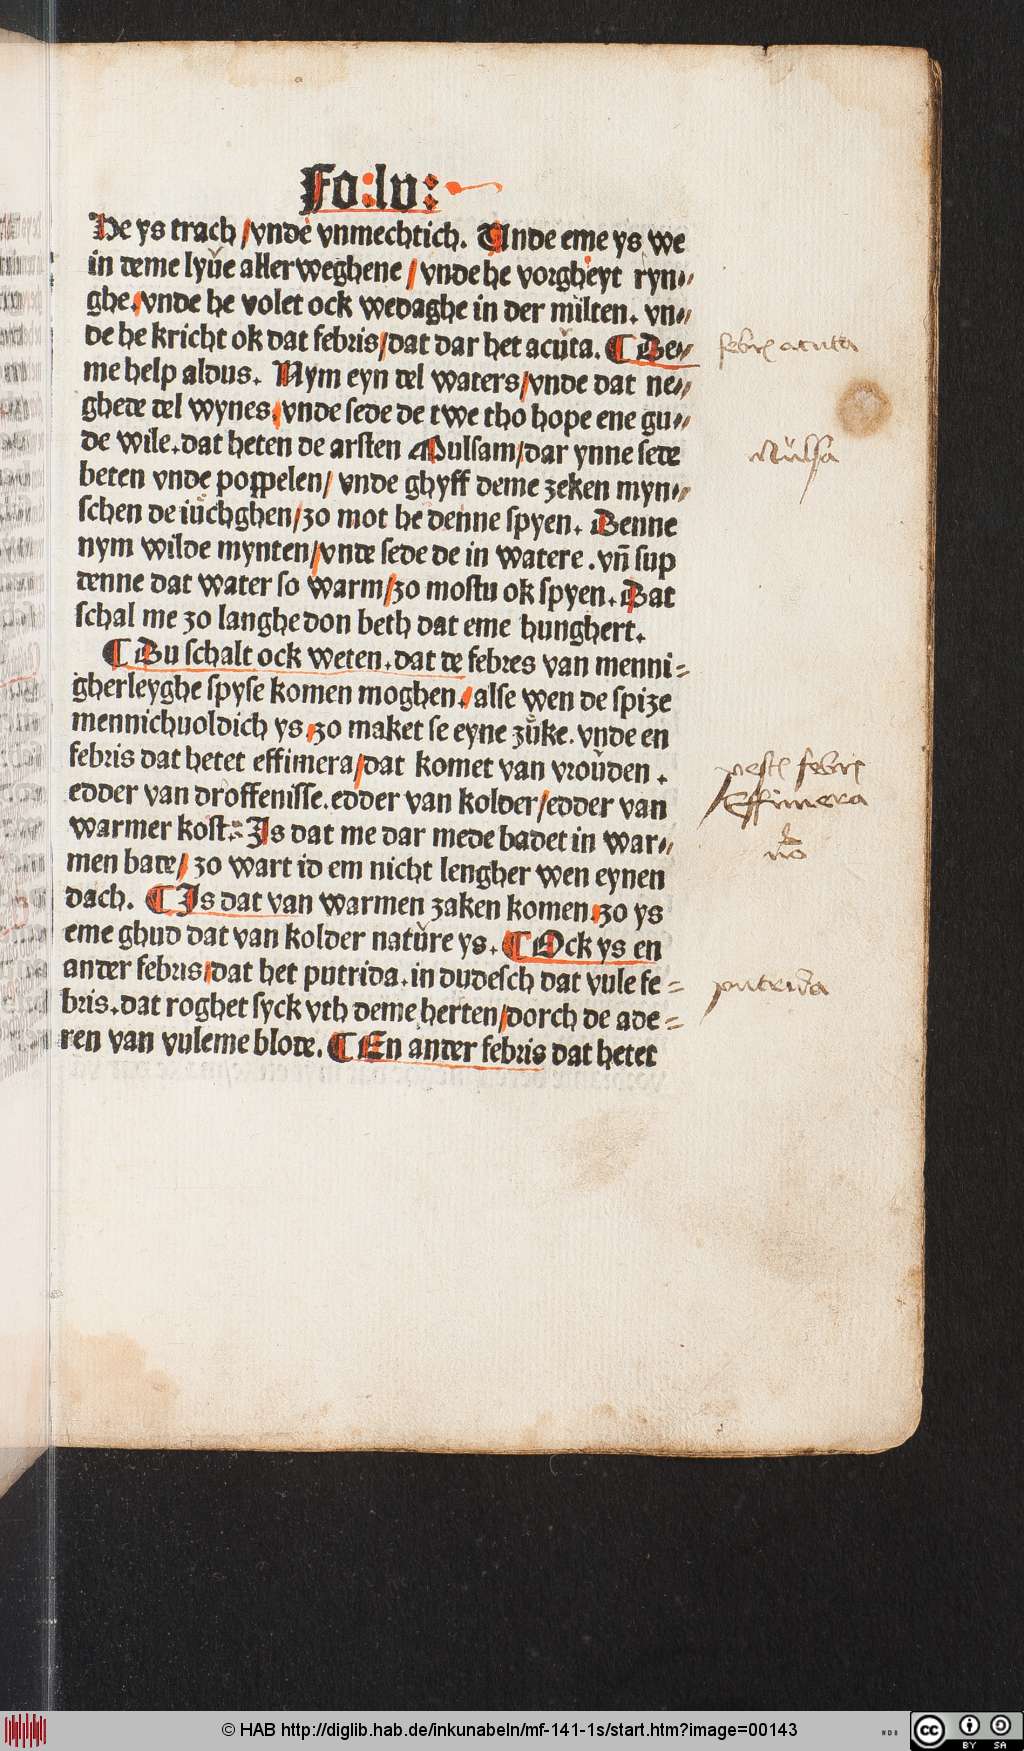 Fo:lv:
He ys trach/vnde vnmechtich. Unde eme ys we
in deme lyue aller weghene/vnde he vorgheyt ryn⸗
ghe.vnde he volet ock wedaghe in der milten. vn⸗
de he kricht ok dat febris/dat dar het acuta. ¶ De⸗
me help aldus. Nym eyn del waters/vnde dat ne⸗
ghede del wynes.vnde sede de twe tho hope ene gu⸗
de wile.dat heten de arsten Mulsam/dar ynne sede
beten vnde poppelen/ vnde ghyff deme zeken myn⸗
schen de iuchghen/zo mot he denne spyen. Denne
nym wilde mynten/vnde sede de in watere.vn̄ sup
denne dat water so warm/zo mostu ok spyen. Dat
schal me zo langhe don beth dat eme hunghert.
¶ Du schalt ock weten.dat de febres van menni⸗
gherleyghe spyse komen moghen./alse wen de spize
mennichuoldich ys.zo maket se eyne zuke.vnde en
febris dat hetet effimera/dat komet van vrouden.
edder van droffenisse.edder van kolder/edder van
warmer kost. Is dat me dar mede badet in war⸗
men bade/ zo wart id em nicht lengher wen eynen
dach. ¶ Is dat van warmen zaken komen.zo ys
eme ghud dat van kolder nature ys. ¶ Ock ys en
ander febris/dat het putrida.in dudesch dat vule fe⸗
bris.dat roghet syck vth deme herten/dorch de ade⸗
ren van vuleme blode. ¶ En ander febris dat hetet
febris acuta
Mulsa
febris
Effimera
putrida
© HAB http://diglib.hab.de/inkunabeln/mf-141-1s/start.htm?image=00143
cc BY SA